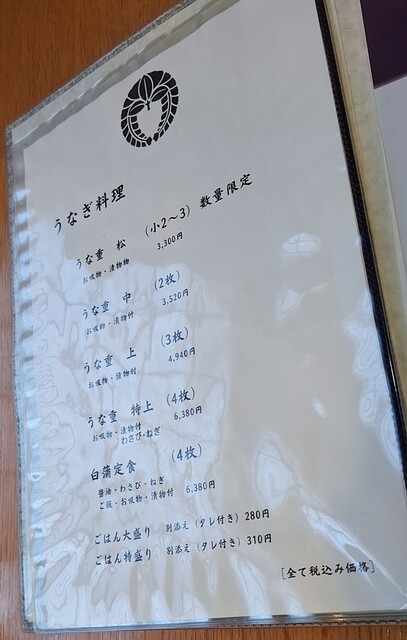 うなぎ料理
うな重 松 (小2～3) 数量限定
お吸物・漬物物 3,300円
うな重 中 (2枚)
お吸物・漬物付 3,520円
うな重 上 (3枚)
お吸物・漬物付 4,940円
うな重 特上 (4枚)
お吸物・漬物付 6,380円
わさび・ねぎ
白蒲定食 (4枚)
醤油・わさび・ねぎ
ご飯・お吸物・漬物付 6,380円
ごはん大盛り 別添え (タレ付き) 280円
ごはん特盛り 別添え (タレ付き) 310円
[全て税込み価格]